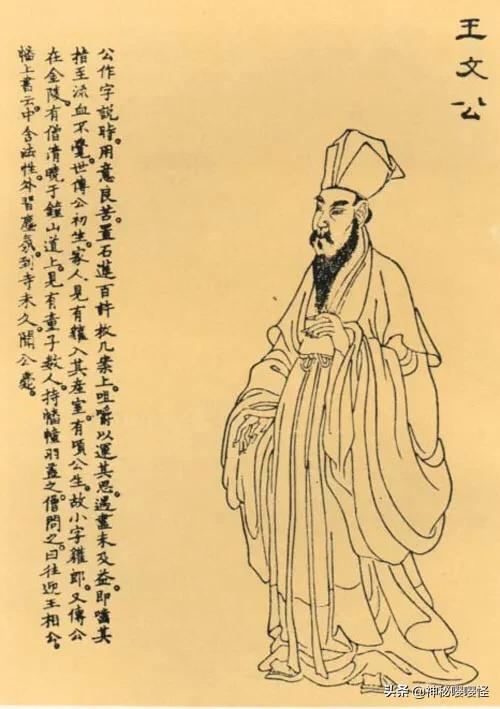 王文公
公作字説時。用意良苦。置石蓮百許枚几案上。咀嚼以運其思。遇盡未及益。即嚙其
指至流血不覺。世傳公初生。家人見有獾入其產室。有頃公生。故小字獾郎。又傳公
在金陵。有僧清曉于鐘山道上。見有童子數人。持幡幢羽蓋之。僧問之。曰往迎王相公。
幡上書云。中含法性。外習塵氛。到寺未久。聞公薨。
头条 @神秘嘤嘤怪